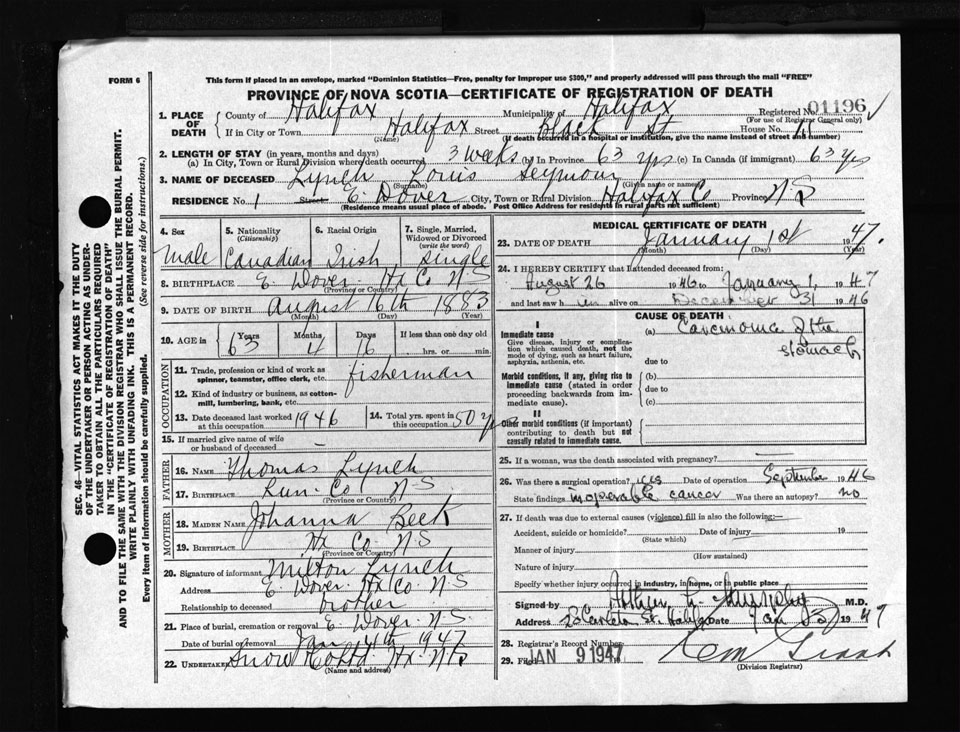 FORM 6
This form if placed in an envelope, marked "Dominion Statistics—Free, penalty for improper use $300," and properly addressed will pass through the mail "FREE"
PROVINCE OF NOVA SCOTIA—CERTIFICATE OF REGISTRATION OF DEATH
1. PLACE OF DEATH
County of Halifax Municipality of Halifax Registered No. 01196
(For use of Registrar General only)
If in City or Town Halifax Street Black St House No. 11
(Name) (If death occurred in a hospital or institution, give the name instead of street and number)
2. LENGTH OF STAY (in years, months and days)
(a) In City, Town or Rural Division where death occurred 3 weeks (b) In Province 63 yrs (c) In Canada (if immigrant) 63 yrs
3. NAME OF DECEASED Lynch Louis Seymour
(Surname) (Given name or names)
RESIDENCE No. 1 Street E. Dover City, Town or Rural Division Halifax Co Province N S
(Residence means usual place of abode. Post Office Address for residents in rural parts not sufficient)
4. Sex Male
5. Nationality (Citizenship) Canadian
6. Racial Origin Irish
7. Single, Married, Widowed or Divorced (write the word) Single
8. BIRTHPLACE E. Dover Hx Co N S
(Province or Country)
9. DATE OF BIRTH August 16th 1883
(Month) (Day) (Year)
10. AGE in Years 63 Months 4 Days 16 If less than one day old hrs. or min
OCCUPATION
11. Trade, profession or kind of work as spinner, teamster, office clerk, etc. fisherman
12. Kind of industry or business, as cotton-mill, lumbering, bank, etc.
13. Date deceased last worked at this occupation 1946
14. Total yrs. spent in this occupation 50 yrs
15. If married give name of wife or husband of deceased –
FATHER
16. NAME Thomas Lynch
17. BIRTHPLACE Lun. Co N-S
(Province or Country)
MOTHER
18. MAIDEN NAME Johanna Beck
19. BIRTHPLACE Hx Co N-S
(Province or Country)
20. Signature of informant Milton Lynch
Address E. Dover Hx Co. N S
Relationship to deceased brother
21. Place of burial, cremation or removal E. Dover N.S.
Date of burial or removal Jan 4th 1947
22. UNDERTAKER Snow Co Ltd Hx. N S
(Name and address)
MEDICAL CERTIFICATE OF DEATH
23. DATE OF DEATH January 1st 1947.
(Month) (Day) (Year)
24. I HEREBY CERTIFY that I attended deceased from:
August 26 1946 to January 1, 1947
and last saw h im alive on December 31 1946
CAUSE OF DEATH
I
Immediate cause (a) Carcinoma of the stomach
Give disease, injury or complication which caused death, not the mode of dying, such as heart failure, asphyxia, asthenia, etc.
due to
Morbid conditions, if any, giving rise to immediate cause (stated in order proceeding backwards from immediate cause).
(b)
due to
(c)
II
Other morbid conditions (if important) contributing to death but not causally related to immediate cause.
25. If a woman, was the death associated with pregnancy?
26. Was there a surgical operation? yes Date of operation September 1946
State findings inoperable cancer Was there an autopsy? no
27. If death was due to external causes (violence) fill in also the following:—
Accident, suicide or homicide? Date of injury 19
(State which)
Manner of injury
(How sustained)
Nature of injury
Specify whether injury occurred in industry, in home, or in public place
Signed by Arthur L. Murphy M.D.
Address 28 Carleton St. Halifax Date Jan 1947
28. Registrar's Record Number
29. Filed JAN 9 1947
(Division Registrar)
SEC. 46—VITAL STATISTICS ACT MAKES IT THE DUTY
OF THE UNDERTAKER OR PERSON ACTING AS UNDER-
TAKER TO OBTAIN ALL THE PARTICULARS REQUIRED
IN THE "CERTIFICATE OF REGISTRATION OF DEATH"
AND TO FILE THE SAME WITH THE DIVISION REGISTRAR WHO SHALL ISSUE THE BURIAL PERMIT.
WRITE PLAINLY WITH UNFADING INK. THIS IS A PERMANENT RECORD.
Every item of information should be carefully supplied. (See reverse side for instructions.)